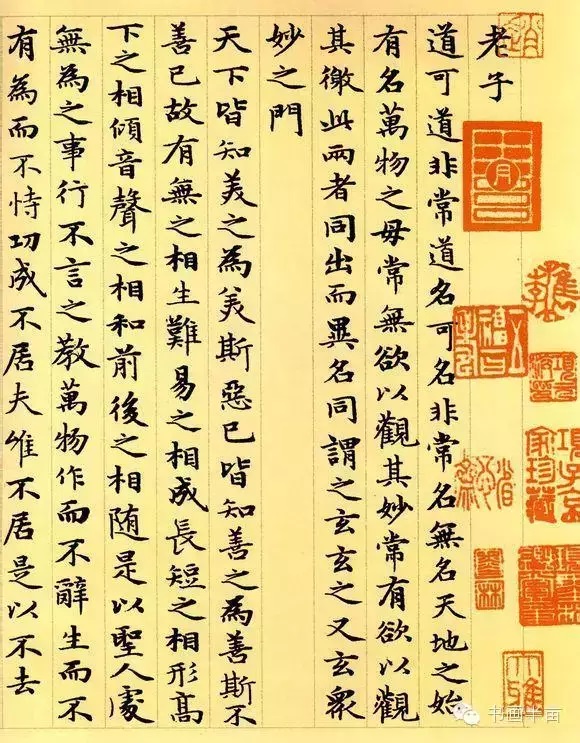 老子
道可道非常道名可名非常名無名天地之始
有名萬物之母常無欲以觀其妙常有欲以觀
其徼此兩者同出而異名同謂之玄玄之又玄眾
妙之門
天下皆知美之為美斯惡已皆知善之為善斯不
善已故有無之相生難易之相成長短之相形高
下之相傾音聲之相和前後之相随是以聖人處
無為之事行不言之教萬物作而不辭生而不
有為而不恃功成不居夫唯不居是以不去
項子京
家珍藏
墨林
书画半亩